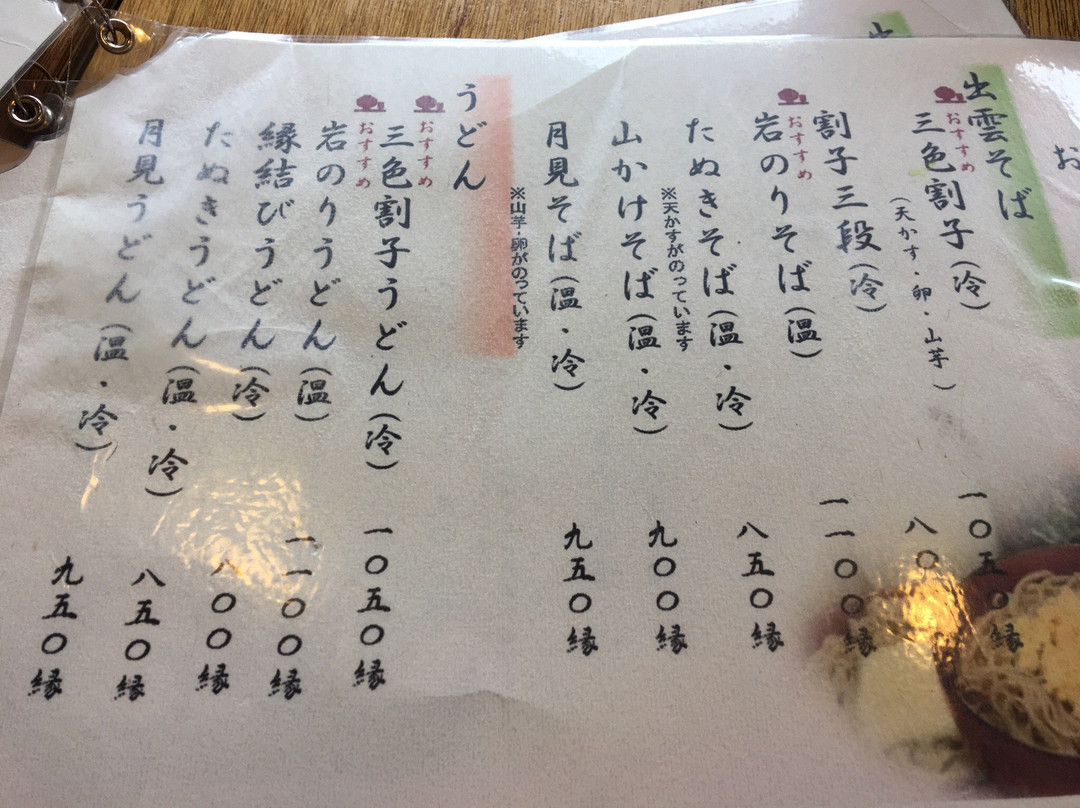 お
出雲そば
おすすめ
三色割子(冷) 一〇五〇縁
(天かす・卵・山芋)
割子三段(冷) 八〇
おすすめ
岩のりそば(温) 一一〇〇縁
たぬきそば(温・冷) 八五〇縁
※天かすがのっています
山かけそば(温・冷) 九〇〇縁
月見そば(温・冷) 九五〇縁
※山芋・卵がのっています
うどん
おすすめ
三色割子うどん(冷) 一〇五〇縁
おすすめ
岩のりうどん(温) 一一〇〇縁
縁結びうどん(冷) 八〇〇縁
たぬきうどん(温・冷) 八五〇縁
月見うどん(温・冷) 九五〇縁